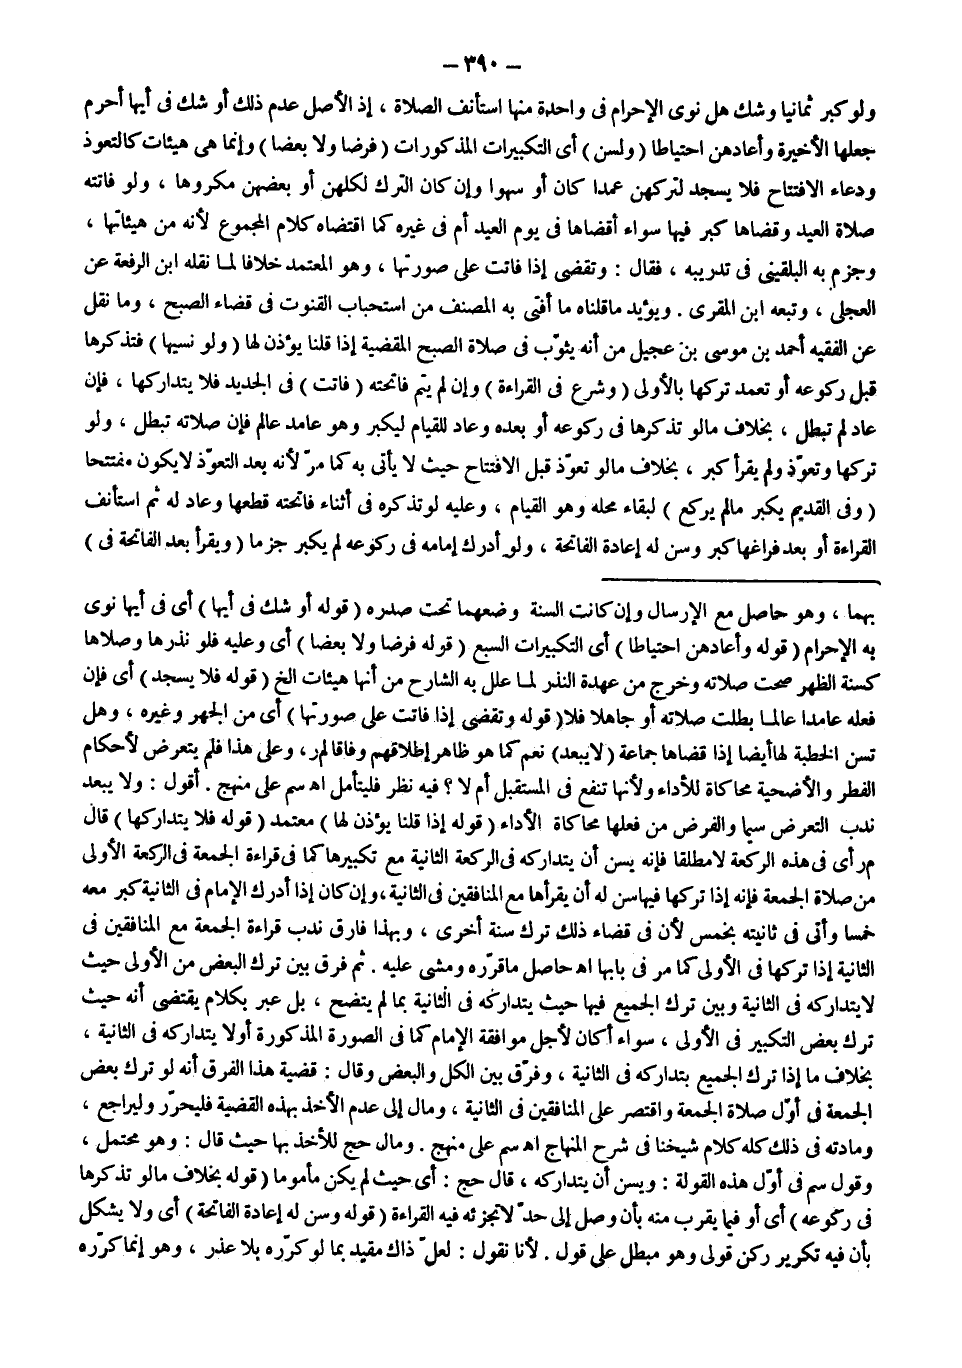 – ٣٩٠ –
ولو كبر ثمانيا وشك هل نوى الإحرام فى واحدة منها استأنف الصلاة ، إذ الأصل عدم ذلك أو شك فى أيها أحرم
جعلها الأخيرة وأعادهن احتياطا ( ولسن ) أى التكبيرات المذكورات ( فرضا ولا بعضا ) وإنما هى هيئات كالتعوذ
ودعاء الافتتاح فلا يسجد لتركهن عمدا كان أو سهوا وإن كان الترك لكلهن أو بعضهن مكروها ، ولو فاتته
صلاة العيد وقضاها كبر فيها سواء أقضاها فى يوم العيد أم فى غيره كما اقتضاه كلام المجموع لأنه من هيئاتها ،
وجزم به البلقينى فى تدريبه ، فقال : وتقضى إذا فاتت على صورتها ، وهو المعتمد خلافا لما نقله ابن الرفعة عن
العجلى ، وتبعه ابن المقرى . ويؤيد ماقلناه ما أفتى به المصنف من استحباب القنوت فى قضاء الصبح ، وما نقل
عن الفقيه أحمد بن موسى بن عجيل من أنه يثوّب فى صلاة الصبح المقضية إذا قلنا يؤذن لها ( ولو نسيها ) فتذكرها
قبل ركوعه أو تعمد تركها بالأولى ( وشرع فى القراءة ) وإن لم يتم فاتحته ( فاتت ) فى الجديد فلا يتداركها ، فإن
عاد لم تبطل ، بخلاف مالو تذكرها فى ركوعه أو بعده وعاد للقيام ليكبر وهو عامد عالم فإن صلاته تبطل ، ولو
تركها وتعوّذ ولم يقرأ كبر ، بخلاف مالو تعوّذ قبل الافتتاح حيث لا يأتى به كما مرّ لأنه بعد التعوّذ لايكون مفتتحا
( وفى القديم يكبر مالم يركع ) لبقاء محله وهو القيام ، وعليه لو تذكره فى أثناء فاتحته قطعها وعاد له ثم استأنف
القراءة أو بعد فراغها كبر وسن له إعادة الفاتحة ، ولو أدرك إمامه فى ركوعه لم يكبر جزما ( ويقرأ بعد الفاتحة فى )
بهما ، وهو حاصل مع الإرسال وإن كانت السنة وضعهما تحت صدره ( قوله أو شك فى أيها ) أى فى أيها نوى
به الإحرام ( قوله وأعادهن احتياطا ) أى التكبيرات السبع ( قوله فرضا ولا بعضا ) أى وعليه فلو نذرها وصلاها
كسنة الظهر صحت صلاته وخرج من عهدة النذر لما علل به الشارح من أنها هيئات الخ ( قوله فلا يسجد ) أى فإن
فعله عامدا عالما بطلت صلاته أو جاهلا فلا ( قوله وتقضى إذا فاتت على صورتها ) أى من الجهر وغيره ، وهل
تسن الخطبة لها أيضا إذا قضاها جماعة ( لايبعد ) نعم كما هو ظاهر إطلاقهم وفاقا لمر ، وعلى هذا فلم يتعرض لأحكام
الفطر والأضحية محاكاة للأداء ولأنها تنفع فى المستقبل أم لا ؟ فيه نظر فليتأمل اه سم على منهج . أقول : ولا يبعد
ندب التعرض سيما والغرض من فعلها محاكاة الأداء ( قوله إذا قلنا يؤذن لها ) معتمد ( قوله فلا يتداركها ) قال
مر أى فى هذه الركعة لا مطلقا فإنه يسن أن يتداركه فى الركعة الثانية مع تكبيرها كما فى قراءة الجمعة فى الركعة الأولى
من صلاة الجمعة فإنه إذا تركها فيها سن له أن يقرأها مع المنافقين فى الثانية ، وإن كان إذا أدرك الإمام فى الثانية كبر معه
خمسا وأتى فى ثانيته بخمس لأن فى قضاء ذلك ترك سنة أخرى ، وبهذا فارق ندب قراءة الجمعة مع المنافقين فى
الثانية إذا تركها فى الأولى كما مر فى بابها اه حاصل ماقرّره ومشى عليه . ثم فرق بين ترك البعض من الأولى حيث
لايتداركه فى الثانية وبين ترك الجميع فيها حيث يتداركه فى الثانية بما لم يتضح ، بل عبر بكلام يقتضى أنه حيث
ترك بعض التكبير فى الأولى ، سواء أكان لأجل موافقة الإمام كما فى الصورة المذكورة أولا يتداركه فى الثانية ،
بخلاف ما إذا ترك الجميع يتداركه فى الثانية ، وفرّق بين الكل والبعض وقال : قضية هذا الفرق أنه لو ترك بعض
الجمعة فى أوّل صلاة الجمعة واقتصر على المنافقين فى الثانية ، ومال إلى عدم الأخذ بهذه القضية فليحرّر وليراجع ،
ومادته فى ذلك كله كلام شيخنا فى شرح المنهاج اه سم على منهج . ومال حج للأخذ بها حيث قال : وهو محتمل ،
وقول سم فى أوّل هذه القولة : ويسن أن يتداركه ، قال حج : أى حيث لم يكن مأموما ( قوله بخلاف مالو تذكرها
فى ركوعه ) أى أو فيما يقرب منه بأن وصل إلى حدّ لاتجزئه فيه القراءة ( قوله وسن له إعادة الفاتحة ) أى ولا يشكل
بأن فيه تكرير ركن قولى وهو مبطل على قول . لأنا نقول : لعلّ ذاك مقيد بما لو كرّره بلا عذر ، وهو إنما كرّره